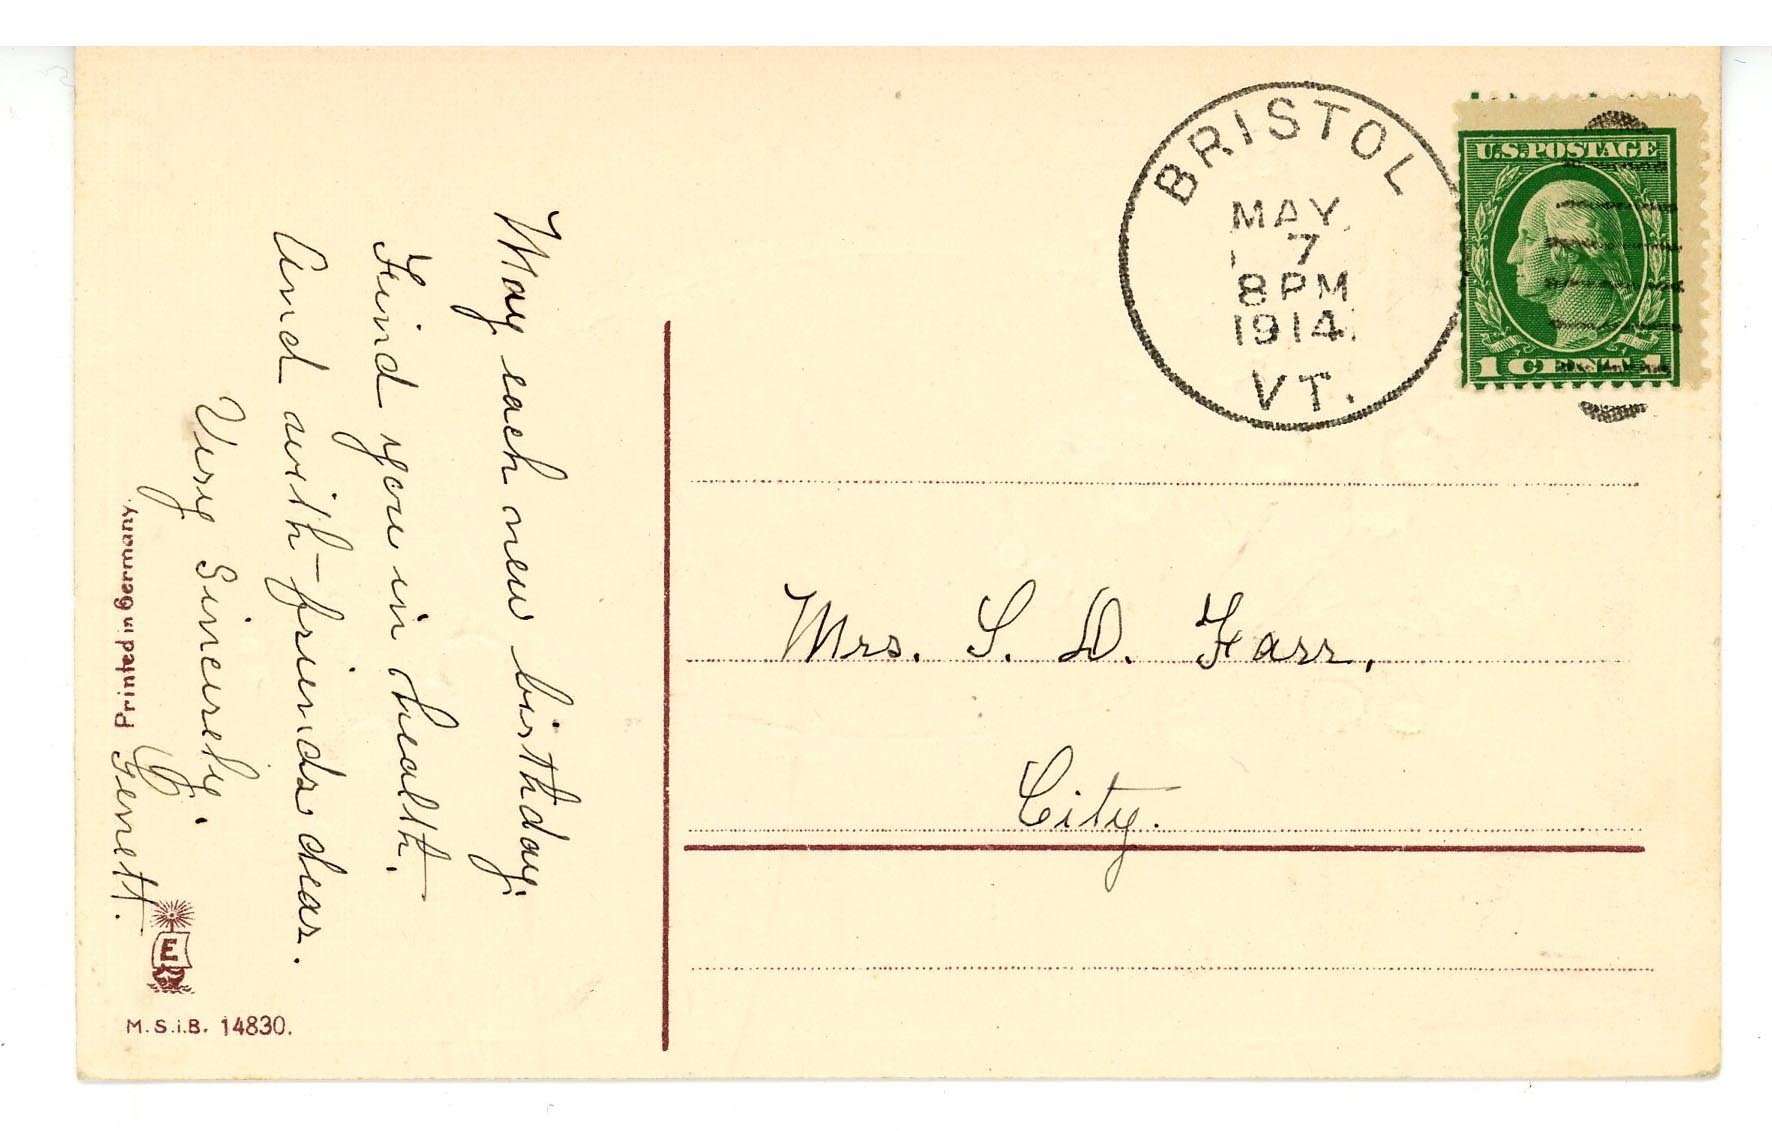 May each new birthday,
Find you in health.
And with friends dear.
Very Sincerely.
Genett.
Printed in Germany
E
M.S.i.B. 14830.
BRISTOL
MAY.
7
8 PM
1914.
VT.
U.S. POSTAGE
1 CENT 1
Mrs. S. D. Farr,
City.